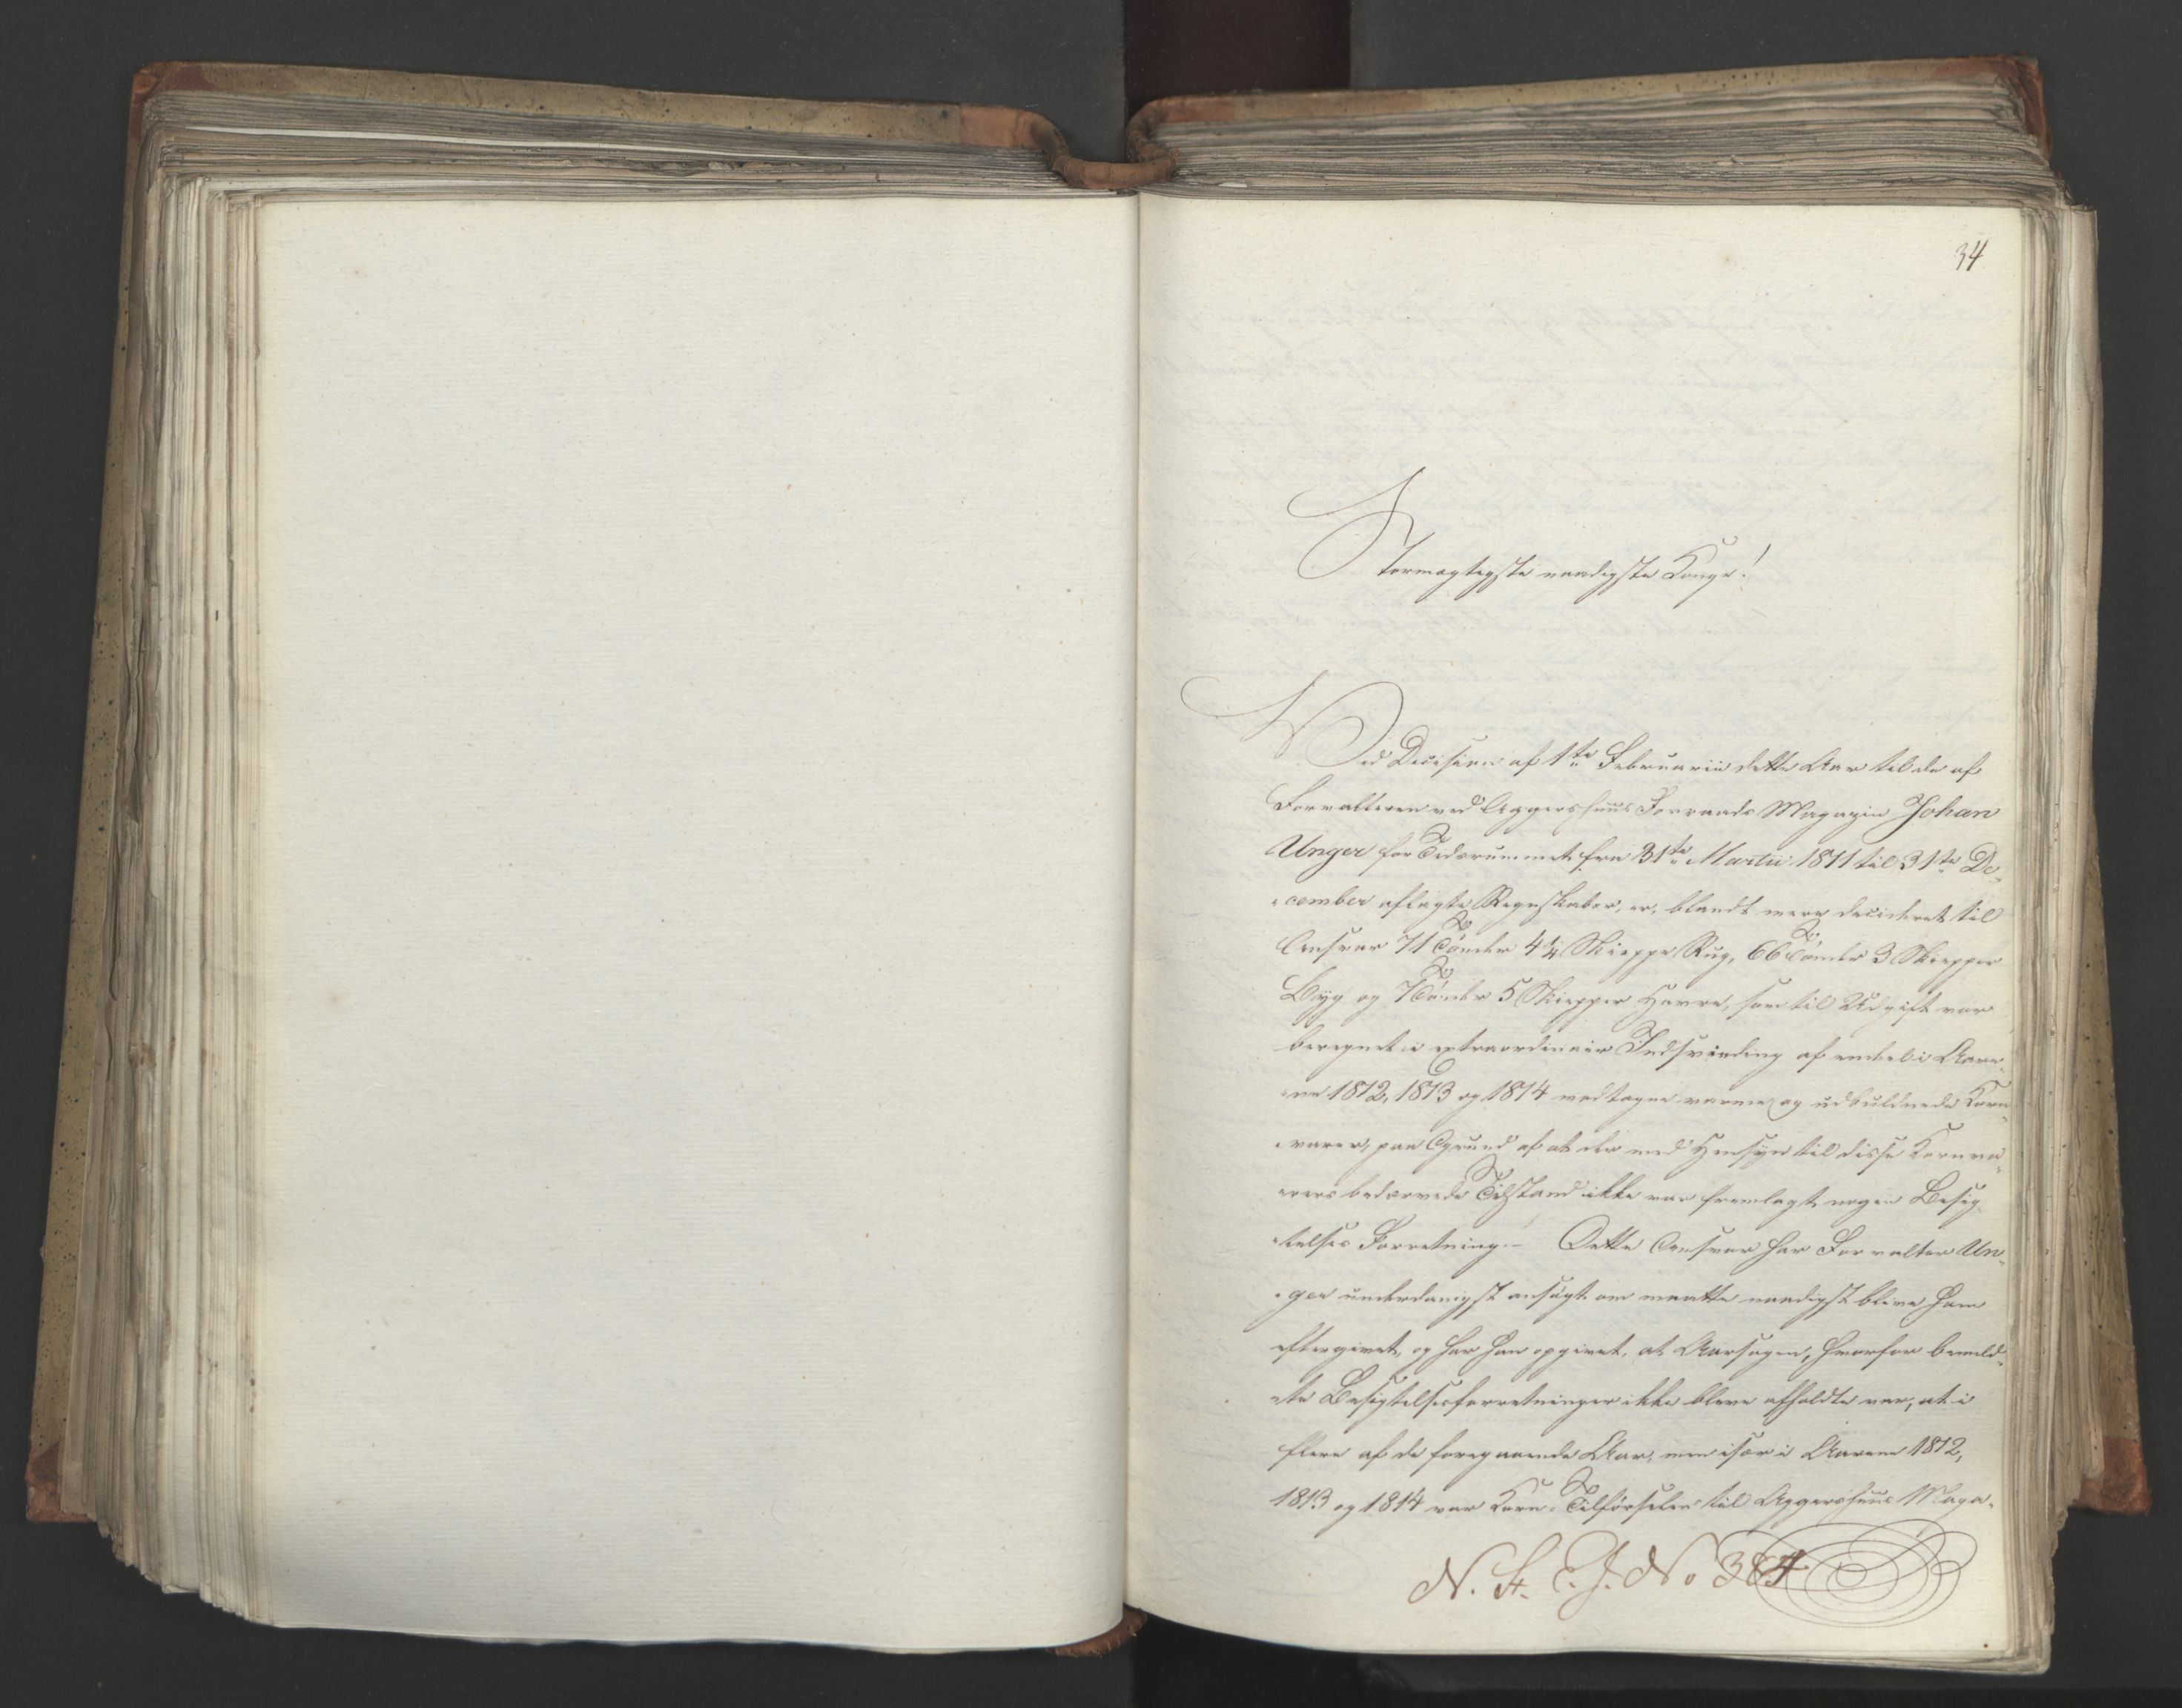 34
Stormægtigste naadigste Konge!
Ved Decision af 1ste Februarii dette Aar til de af
Forvalteren ved Aggershuus Forraads Magazin Johan
Unger for Tidsrummet fra 31te Martii 1811 til 31te De-
cember aflagte Regnskaber, er, blandt mere decideret til
Ansvar 71 Tönder 4¼ Skieppe Rug, 66 Tönder 3 Skiepper
Byg og 7 Tönder 5 Skiepper Havre, som til Udgift var
beregnet i extraordinair Indsvinding af endel i Aare-
ne 1812, 1813 og 1814 modtagne varme og udbuldnede Korn-
varer, paa Grund af at der med Hensyn til disse Kornva-
rers bedærvede Tilstand ikke var fremlagt nogen Besig-
telses Forretning. – Dette Ansvar har Forvalter Un-
ger underdanigst ansögt om maatte naadigst blive ham
eftergivet, og har han opgivet, at Aarsagen, hvorfor bemeld-
te Besigtelsesforretninger ikke bleve afholdte var, at i
flere af de foregaaende Aar, men især i Aarene 1812,
1813 og 1814 var Korn-Tilförselen til Aggershuus Maga-
N. St. E. J. No 384